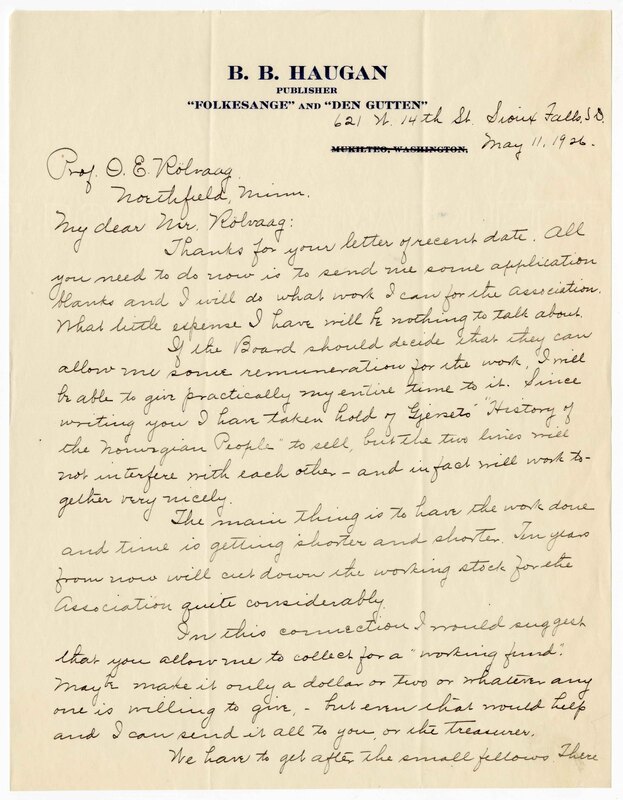 B. B. HAUGAN
PUBLISHER
"FOLKESANGE" AND "DEN GUTTEN"
621 W. 14th St. Sioux Falls, S.D.
MUKILTEO, WASHINGTON. May 11, 1926.
Prof. O. E. Rölvaag
Northfield, Minn.
My dear Mr. Rölvaag:
Thanks for your letter of recent date. All
you need to do now is to send me some application
blanks and I will do what work I can for the Association.
What little expense I have will be nothing to talk about.
If the Board should decide that they can
allow me some remuneration for the work, I will
be able to give practically my entire time to it. Since
writing you I have taken hold of Gjersets' "History of
the Norwegian People" to sell, but the two lines will
not interfere with each other – and in fact will work to-
gether very nicely.
The main thing is to have the work done
and time is getting shorter and shorter. Ten years
from now will cut down the working stock for the
Association quite considerably.
In this connection I would suggest
that you allow me to collect for a "working fund".
Maybe make it only a dollar or two or whatever any
one is willing to give, – but even that would help
and I can send it all to you, or the treasurer.
We have to get after the small fellows. There